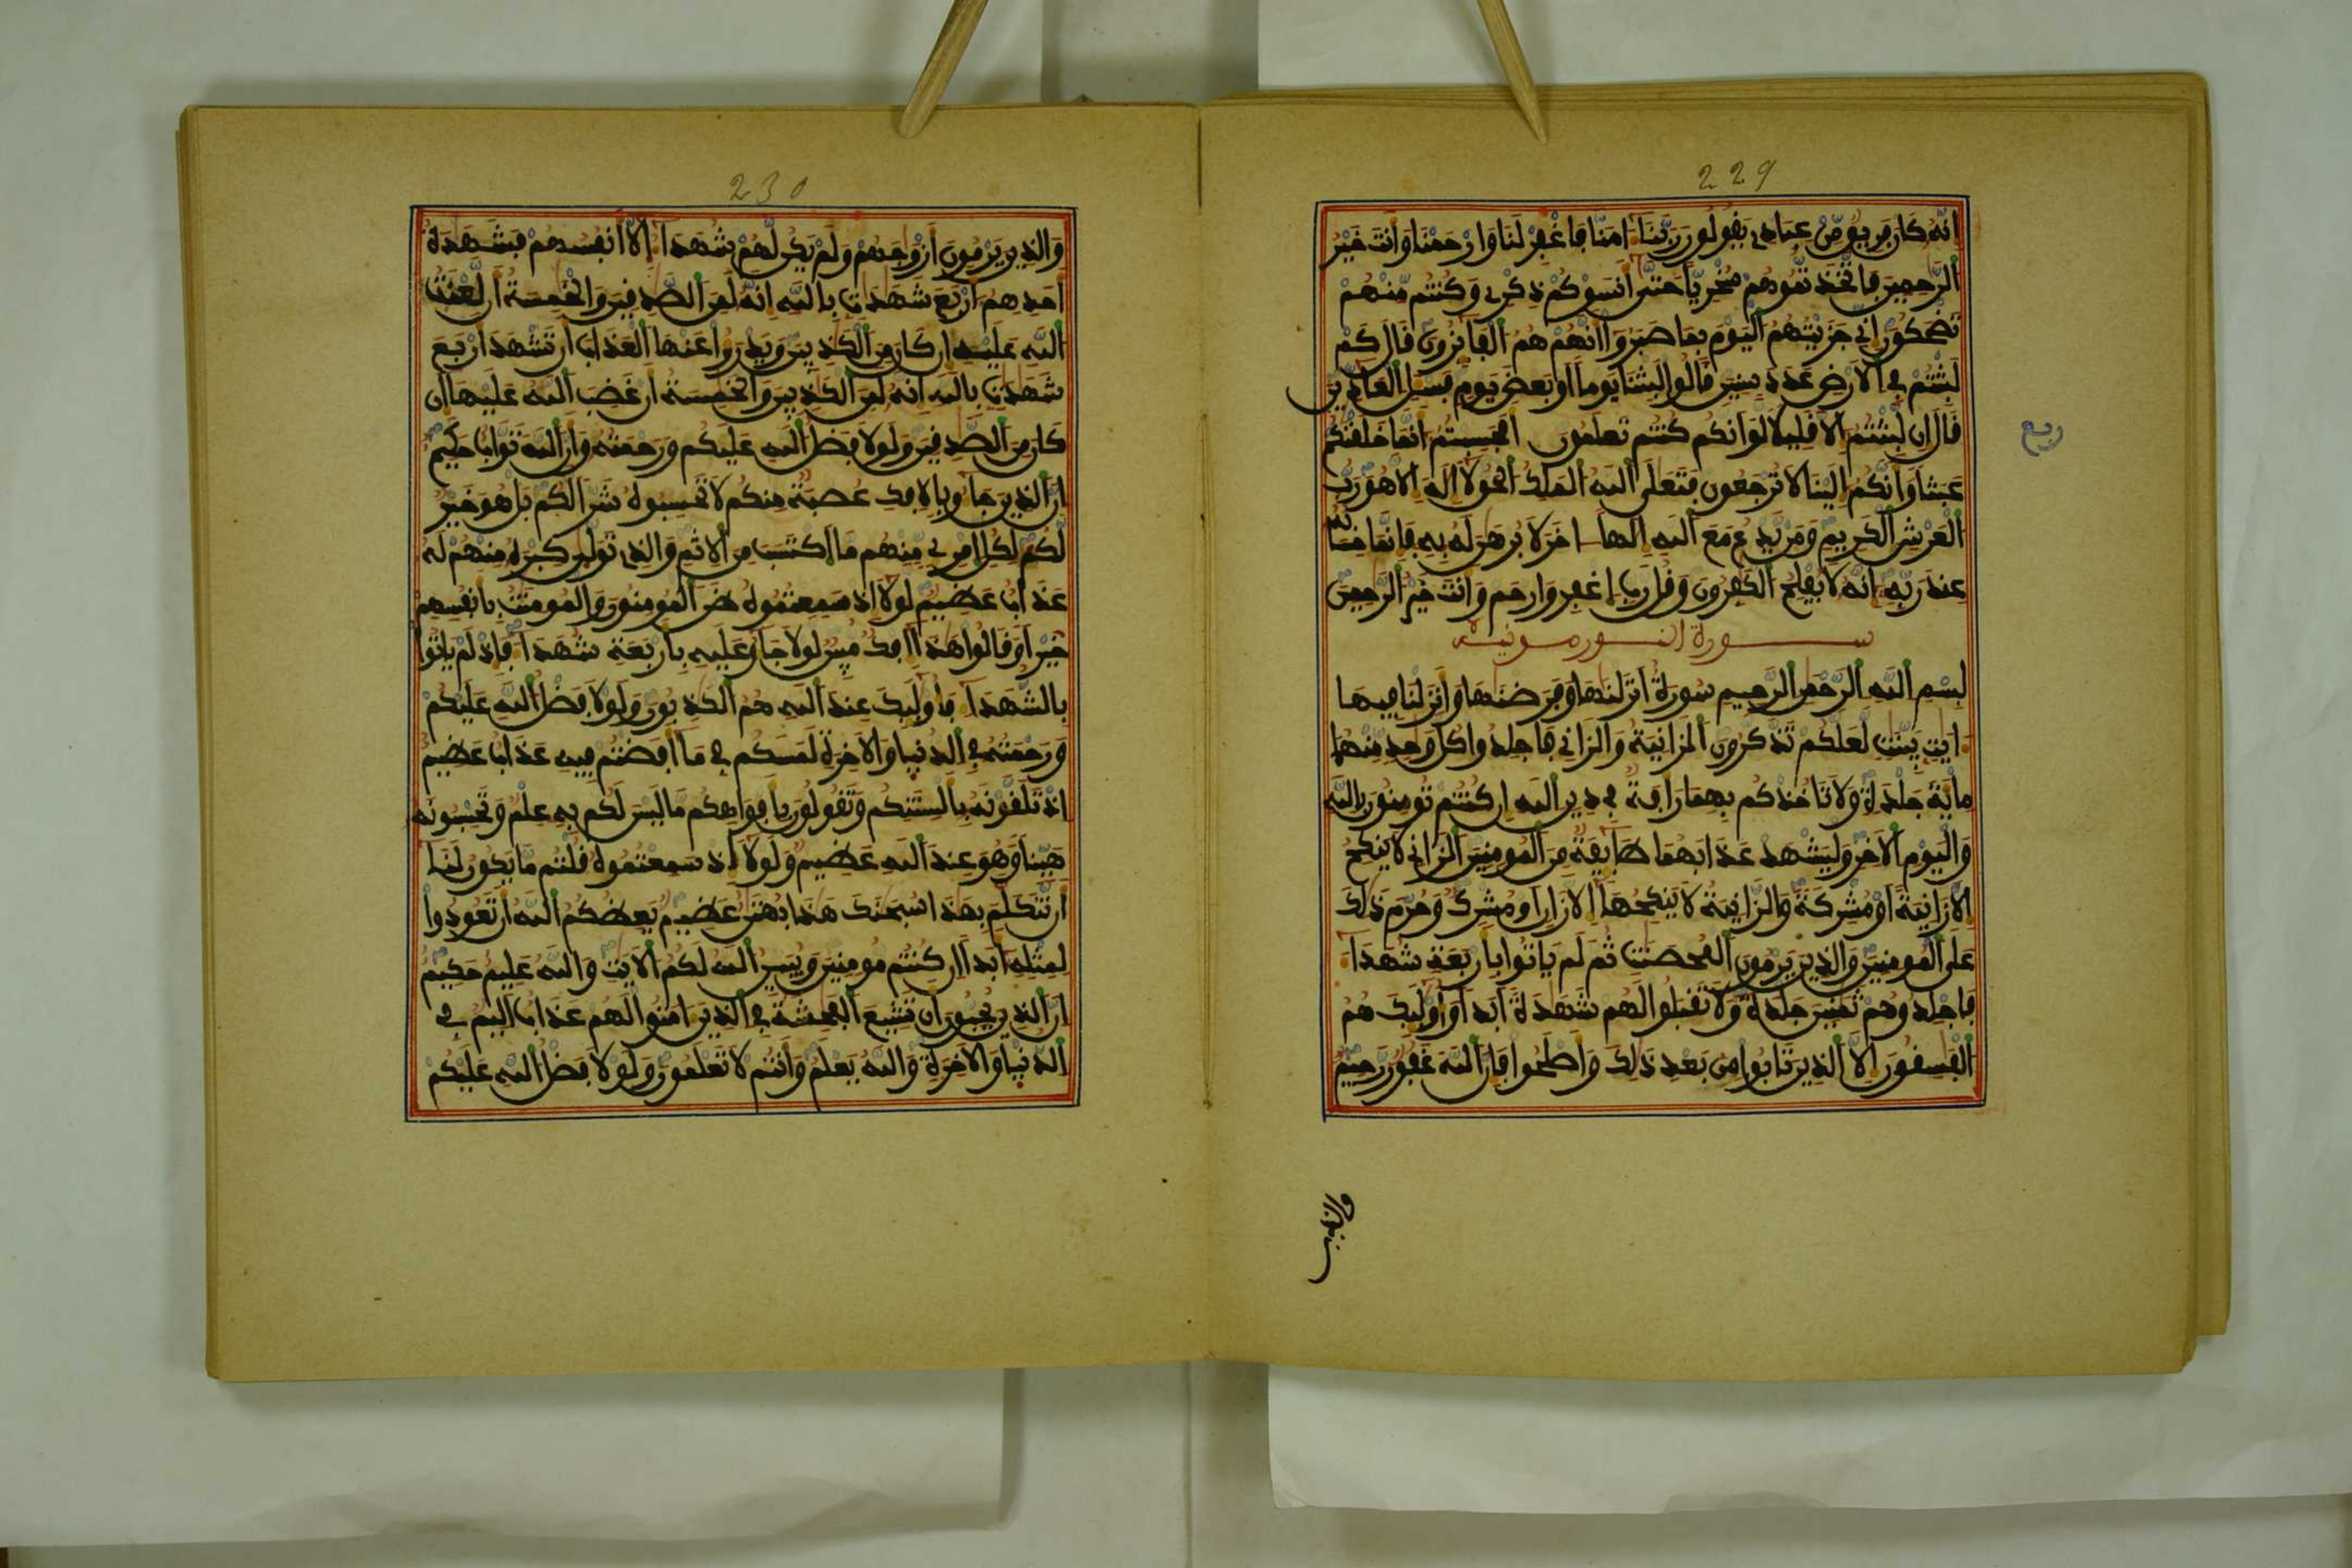 229
انه كان فريق من عبادي يقولون ربنا امنا فاغفر لنا وارحمنا وانت خير
الرحمين فاتخذتموهم سخريا حتى انسوكم ذكري وكنتم منهم
تضحكون اني جزيتهم اليوم بما صبروا انهم هم الفايزون قال كم
لبثتم في الارض عدد سنين قالوا لبثنا يوما او بعض يوم فسل العادين
قال ان لبثتم الا قليلا لو انكم كنتم تعلمون افحسبتم انما خلقنكم
ربع
عبثا وانكم الينا لا ترجعون فتعلى الله الملك الحق لا اله الا هو رب
العرش الكريم ومن يدع مع الله الها اخر لا برهن له به فانما حسابه
عند ربه انه لا يفلح الكفرون وقل رب اغفر وارحم وانت خير الرحمين
سورة النور مدنية
بسم الله الرحمن الرحيم سورة انزلنها وفرضنها وانزلنا فيها
ايت بينت لعلكم تذكرون الزانية والزاني فاجلدوا كل وحد منهما
ماية جلدة ولا تاخذكم بهما رافة في دين الله ان كنتم تومنون بالله
واليوم الاخر وليشهد عذابهما طايفة من المومنين الزاني لا ينكح
الا زانية او مشركة والزانية لا ينكحها الا زان او مشرك وحرم ذلك
على المومنين والذين يرمون المحصنت ثم لم ياتوا باربعة شهدا
فاجلدوهم ثمنين جلدة ولا تقبلوا لهم شهدة ابدا واوليك هم
الفسقون الا الذين تابوا من بعد ذلك واصلحوا فان الله غفور رحيم
والذين
230
والذين يرمون ازوجهم ولم يكن لهم شهدا الا انفسهم فشهدة
احدهم اربع شهدت بالله انه لمن الصدقين والخمسة ان لعنت
الله عليه ان كان من الكذبين ويدرؤا عنها العذاب ان تشهد اربع
شهدت بالله انه لمن الكذبين والخمسة ان غضب الله عليها ان
كان من الصدقين ولولا فضل الله عليكم ورحمته وان الله تواب حكيم
ان الذين جاو بالافك عصبة منكم لا تحسبوه شرا لكم بل هو خير
لكم لكل امري منهم ما اكتسب من الاثم والذي تولى كبره منهم له
عذاب عظيم لولا اذ سمعتموه ظن المومنون والمومنت بانفسهم
خيرا وقالوا هذا افك مبين لولا جاو عليه باربعة شهدا فاذ لم ياتوا
بالشهدا فاوليك عند الله هم الكذبون ولولا فضل الله عليكم
ورحمته في الدنيا والاخرة لمسكم في ما افضتم فيه عذاب عظيم
اذ تلقونه بالسنتكم وتقولون بافواهكم ما ليس لكم به علم وتحسبونه
هينا وهو عند الله عظيم ولولا اذ سمعتموه قلتم ما يكون لنا
ان نتكلم بهذا سبحنك هذا بهتن عظيم يعظكم الله ان تعودوا
لمثله ابدا ان كنتم مومنين ويبين الله لكم الايت والله عليم حكيم
ان الذين يحبون ان تشيع الفحشة في الذين امنوا لهم عذاب اليم في
الدنيا والاخرة والله يعلم وانتم لا تعلمون ولولا فضل الله عليكم